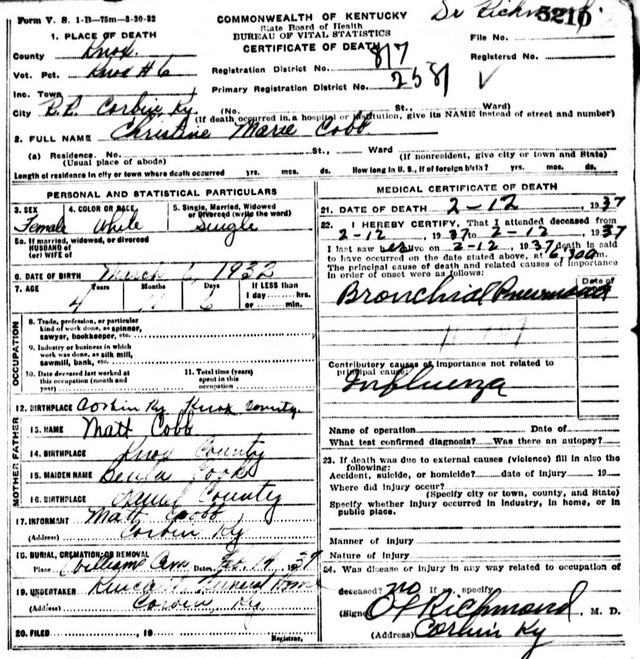 Form V. S. 1-B—75m—3-20-32
COMMONWEALTH OF KENTUCKY
State Board of Health
BUREAU OF VITAL STATISTICS
CERTIFICATE OF DEATH
Dr Richmond
File No. 5210
Registered No.
1. PLACE OF DEATH
County Knox
Vot. Pct. Knox #6
Inc. Town
City R.R. Corbin, Ky. (No. St., Ward)
Registration District No. 817
Primary Registration District No. 2581
(If death occurred in a hospital or institution, give its NAME instead of street and number)
2. FULL NAME Christine Marie Cobb
(a) Residence. No. St., Ward
(Usual place of abode) (If nonresident, give city or town and State)
Length of residence in city or town where death occurred yrs. mos. ds. How long in U. S., if of foreign birth? yrs. mos. ds.
PERSONAL AND STATISTICAL PARTICULARS
3. SEX Female
4. COLOR OR RACE. White
5. Single, Married, Widowed or Divorced (write the word) Single
5a. If married, widowed, or divorced
HUSBAND of
(or) WIFE of
6. DATE OF BIRTH March 6, 1932
7. AGE 4 Years Months Days 6 If LESS than
1 day hrs.
or min.
OCCUPATION
8. Trade, profession, or particular
kind of work done, as spinner,
sawyer, bookkeeper, etc.
9. Industry or business in which
work was done, as silk mill,
sawmill, bank, etc.
10. Date deceased last worked at
this occupation (month and
year)
11. Total time (years)
spent in this
occupation
12. BIRTHPLACE Corbin Ky. Knox County.
MOTHER FATHER
13. NAME Matt Cobb
14. BIRTHPLACE Knox County
15. MAIDEN NAME
16. BIRTHPLACE County
17. INFORMANT Matt Cobb
(Address) Corbin Ky
18. BURIAL, CREMATION, OR REMOVAL
Place Williams Cem Date Feb. 14, 1937
19. UNDERTAKER Funeral Home
(Address) Corbin, Ky
20. FILED , 19
Registrar,
MEDICAL CERTIFICATE OF DEATH
21. DATE OF DEATH 2-12 , 1937
22. I HEREBY CERTIFY, That I attended deceased from
2-12 , 1937 to 2-12 , 1937
I last saw her alive on 2-12 , 1937 death is said
to have occurred on the date stated above, at 6,30 am.
The principal cause of death and related causes of importance
in order of onset were as follows:
Date of
Bronchial Pneumonia
Contributory causes of importance not related to
principal cause:
Influenza
Name of operation Date of
What test confirmed diagnosis? Was there an autopsy?
23. If death was due to external causes (violence) fill in also the
following:
Accident, suicide, or homicide? date of injury 19
Where did injury occur?
(Specify city or town, county, and State)
Specify whether injury occurred in industry, in home, or in
public place.
Manner of injury
Nature of injury
24. Was disease or injury in any way related to occupation of
deceased? no If specify
(Signed) O L Richmond M. D.
(Address) Corbin Ky